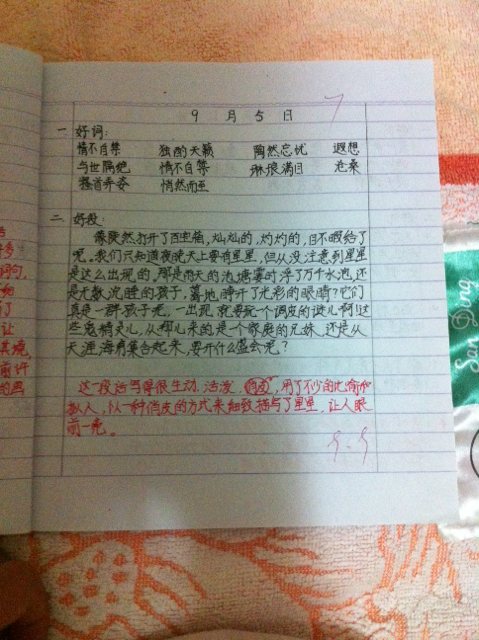 9月5日
一 好词:
情不自禁 独酌天籁 陶然忘忧 遐想
与世隔绝 情不自禁 琳琅满目 沧桑
搔首弄姿 悄然而至
二 好段:
像陡然打开了百宝箱,灿灿的,灼灼的,目不暇给了
呢。我们只知道夜晚天上要有星星,但从没注意到星星
是这么出现的,那是雨天的池塘霎时浮了万千水泡,还
是无数沉睡的孩子,蓦地睁开了光彩的眼睛?它们
真是一群孩子呢,一出现就要玩一个调皮的谜儿啊!这
些鬼精灵儿,从哪儿来的是一个家庭的兄妹 还是从
天涯海角集合起来,要开什么盛会呢?
这一段话写得很生动,活泼,用了不少的比喻和
拟人,以一种俏皮的方式来细致描写了星星,让人眼
前一亮。
9.9
San Ding